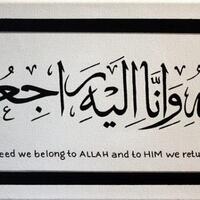 وَإِنَّا إِلَيْهِ رَاجِعُو
eed we belong to ALLAH and to HIM we retu